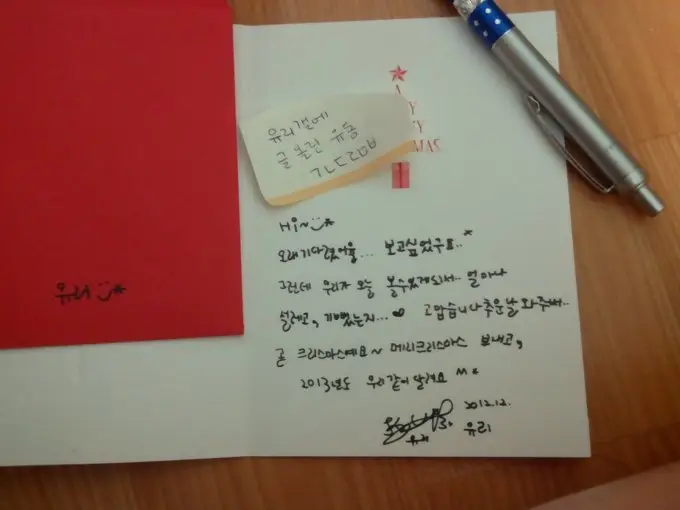 유리갤에
글 올린 유동
ㄱㄴㄷㄹㅁㅂ
A
MAS
Hi~
오래기다렸어용... 보고싶었구요..
그런데 우리가 오늘 볼수있게되서.. 얼마나
설레고, 기뻤는지... 고맙습니다 추운날 와주셔..
곧 크리스마스예요~ 메리크리스마스 보내고,
2013년도 우리같이 달려요
2012.12.
유리
유리
유리